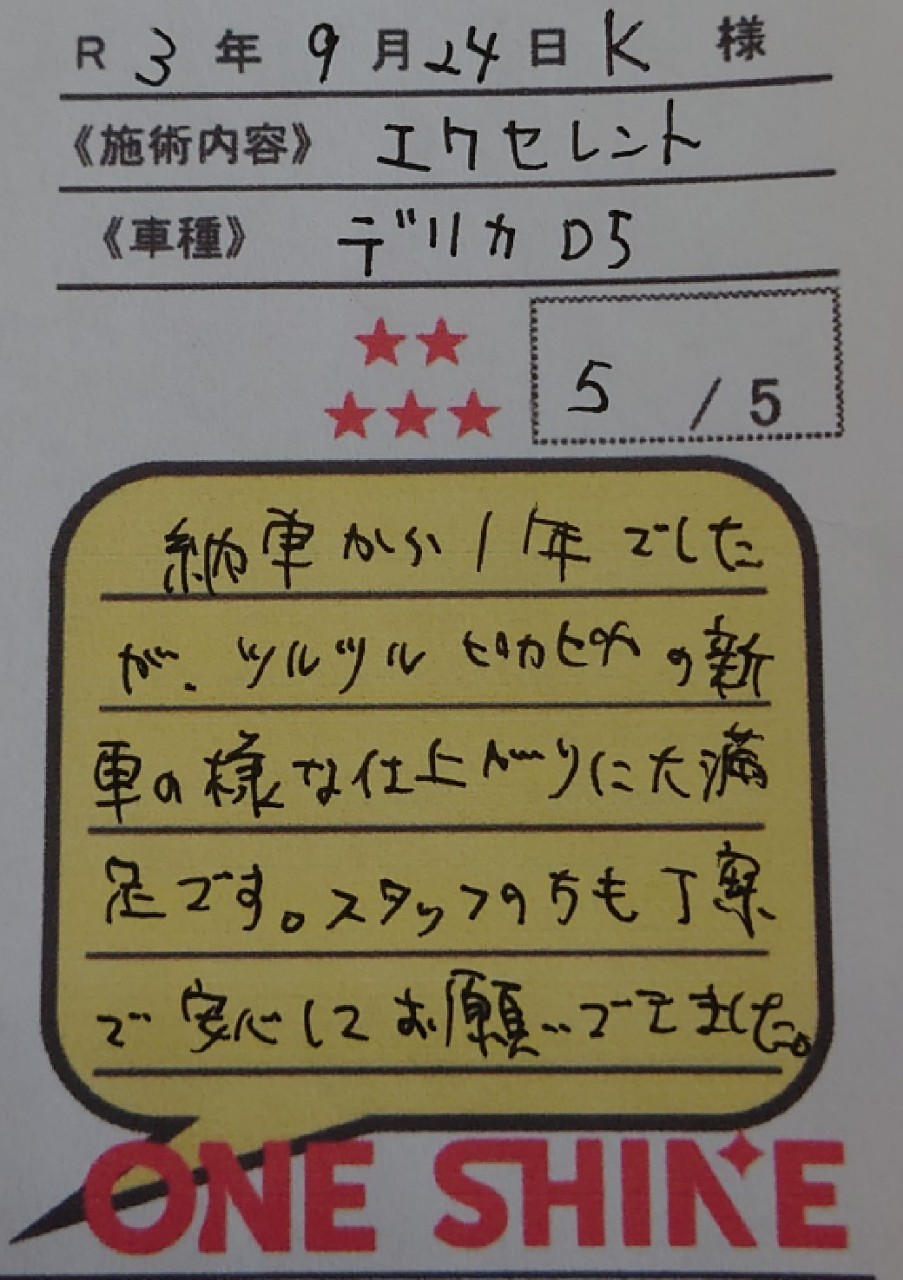 R 3年 9月24日 K 様
《施術内容》 エクセレント
《車種》 デリカ D5
5 / 5
納車から11年でした
が、ツルツル ピカピカの新
車の様な仕上がりに大満
足です。スタッフの方も丁寧
で安心してお願いできました。
ONE SHINE